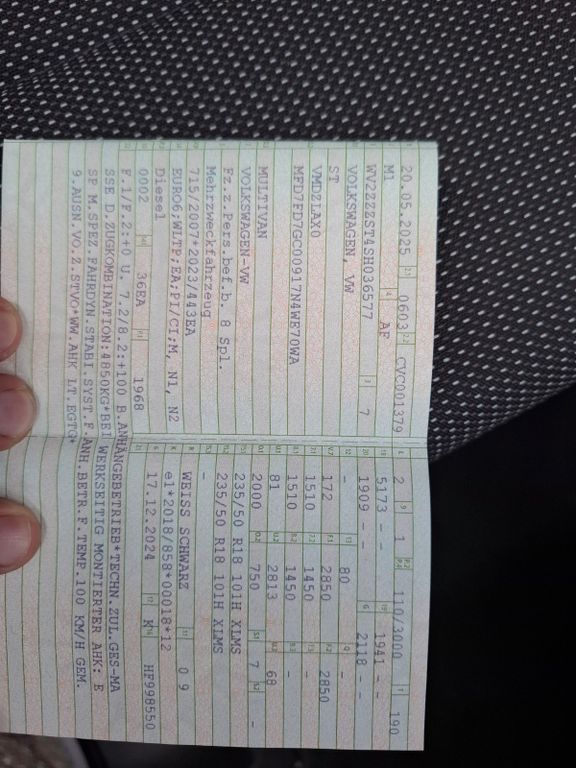 20.05.2025 0603 CVC001379
M1 AF
WV2ZZZST4SH036577 7
VOLKSWAGEN, VW
ST
VMDZLAX0
MFD7FD7GC00917N4WE70WA
MULTIVAN
VOLKSWAGEN-VW
Fz.z.Pers.bef.b. 8 Spl.
Mehrzweckfahrzeug
715/2007*2023/443EA
EURO6;WLTP;EA;PI/CI;M, N1, N2
Diesel
0002 36EA 1968
2 1 110/3000 190
5173 - - 1941 - -
1909 - - 2118 - -
- 80 -
172 2850 2850
1510 1450 -
1510 1450 -
81 2813 68
2000 750 7 -
235/50 R18 101H XLMS
235/50 R18 101H XLMS
-
WEISS SCHWARZ 0 9
e1*2018/858*00018*12
17.12.2024 K HF998550
F.1/F.2:+0 U. 7.2/8.2:+100 B.ANHÄNGEBETRIEB*TECHN.ZUL.GES-MA
SSE D.ZUGKOMBINATION:4850KG*BEI WERKSEITIG MONTIERTER AHK: E
SP M.SPEZ.FAHRDYN.STABI.SYST.F.ANH.BETR.F.TEMP.100 KM/H GEM.
9.AUSN.VO.Z.STVO*WW.AHK LT.EGTG*